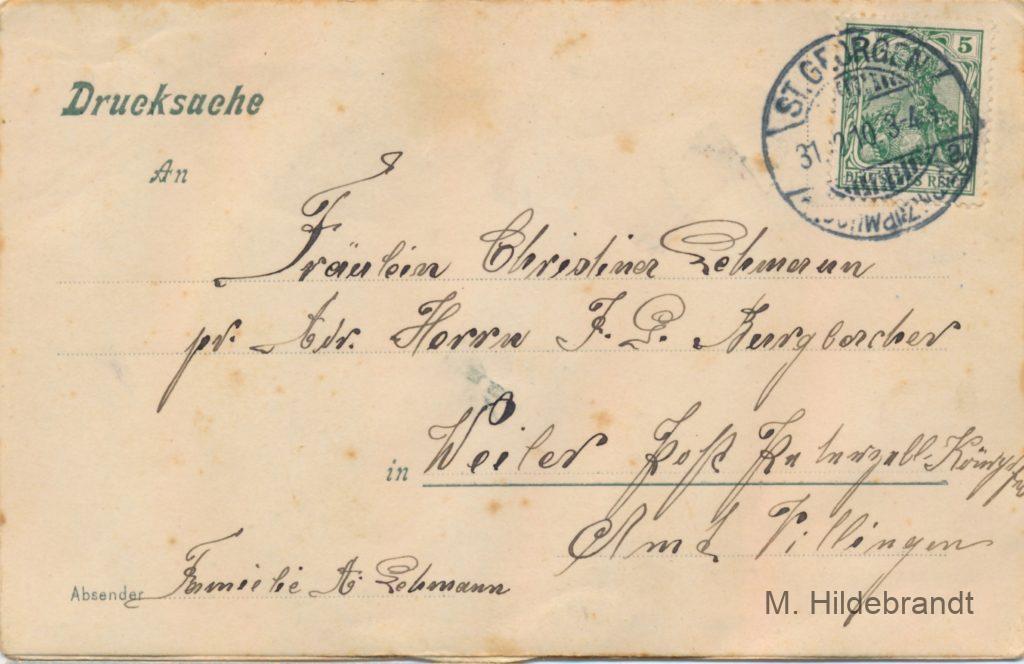 Drucksache
An
ST. GEORGEN
31.12.10. 3-4
5
DEUTSCHES REICH
Fräulein Christina Lehmann
pr. Adr. Herrn J. G. Burgbacher
in Weiler Post Peterzell-Königsfeld
Amt Villingen
Absender Familie A. Lehmann
M. Hildebrandt